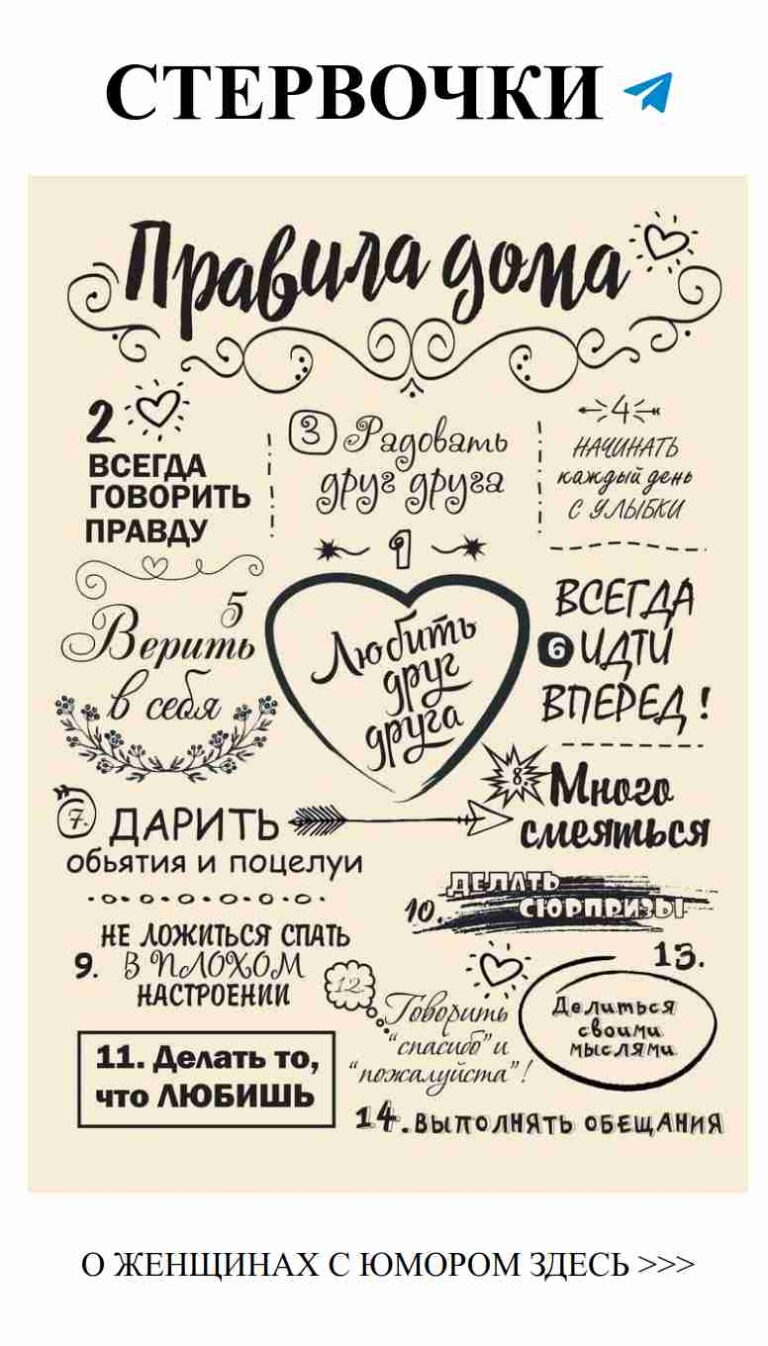 СТЕРВОЧКИ
Правила дома
2
ВСЕГДА
ГОВОРИТЬ
ПРАВДУ
3 Радовать
друг друга
4
НАЧИНАТЬ
каждый день
С УЛЫБКИ
1
Любить
друг
друга
5
Верить
в себя
ВСЕГДА
6 ИДТИ
ВПЕРЕД!
7. ДАРИТЬ
обьятия и поцелуи
8. Много
смеяться
НЕ ЛОЖИТЬСЯ СПАТЬ
9. В ПЛОХОМ
НАСТРОЕНИИ
ДЕЛАТЬ
10. СЮРПРИЗЫ
11. Делать то,
что ЛЮБИШЬ
12.
Говорить
"спасибо" и
"пожалуйста"!
13.
Делиться
своими
мыслями
14. ВЫПОЛНЯТЬ ОБЕЩАНИЯ
О ЖЕНЩИНАХ С ЮМОРОМ ЗДЕСЬ >>>